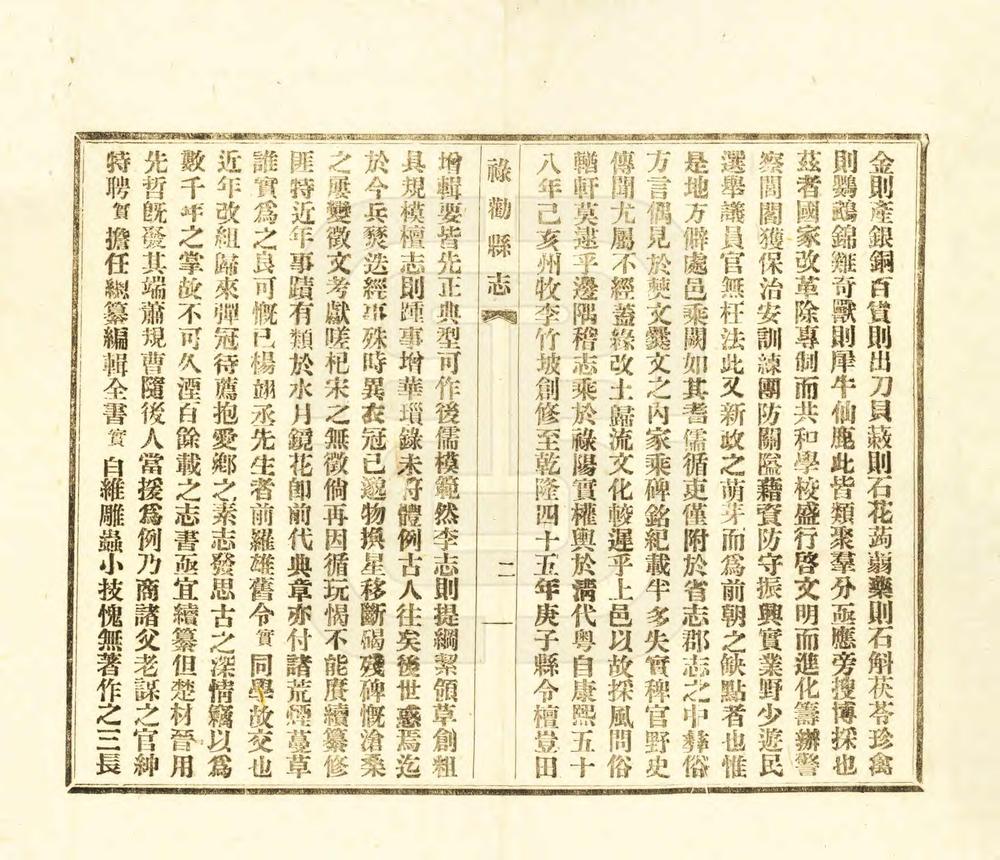 金則產銀銅百貨則出刀貝蔌則石花蒟蒻藥則石斛茯苓珍禽
則鸚鵡錦雞奇獸則犀牛仙鹿此皆類聚羣分亟應旁搜博採也
茲者國家改革除專制而共和學校盛行啓文明而進化籌辦警
察閭閻獲保治安訓練團防關隘藉資防守振興實業野少遊民
選舉議員官無枉法此又新政之萌芽而爲前朝之缺點者也惟
是地方僻處邑乘闕如其耆儒循吏僅附於省志郡志之中彝俗
方言偶見於㸑文爨文之內家乘碑銘紀載半多失實稗官野史
傳聞尤屬不經蓋緣改土歸流文化較遲乎上邑以故採風問俗
輶軒莫逮乎邊隅稽志乘於祿陽實權輿於淸代粤自康熙五十
八年己亥州牧李竹坡創修至乾隆四十五年庚子縣令檀荳田
祿勸縣志
二
增輯要皆先正典型可作後儒模範然李志則提綱絜領草創粗
具規模檀志則踵事增華瑣錄未符體例古人往矣後世惑焉迄
於今兵燹迭經事殊時異衣冠已邈物換星移斷碣殘碑慨滄桑
之屢變徵文考獻嗟杞宋之無徵倘再因循玩愒不能賡續纂修
匪特近年事蹟有類於水月鏡花卽前代典章亦付諸荒煙蔓草
誰實爲之良可慨已楊翊丞先生者前羅雄舊令實同學故交也
近年改組歸來彈冠待薦抱愛鄉之素志發思古之深情竊以爲
數千年之掌故不可久湮百餘載之志書亟宜續纂但楚材晉用
先哲旣發其端蕭規曹隨後人當援爲例乃商諸父老謀之官紳
特聘實擔任總纂編輯全書實自維雕蟲小技愧無著作之三長